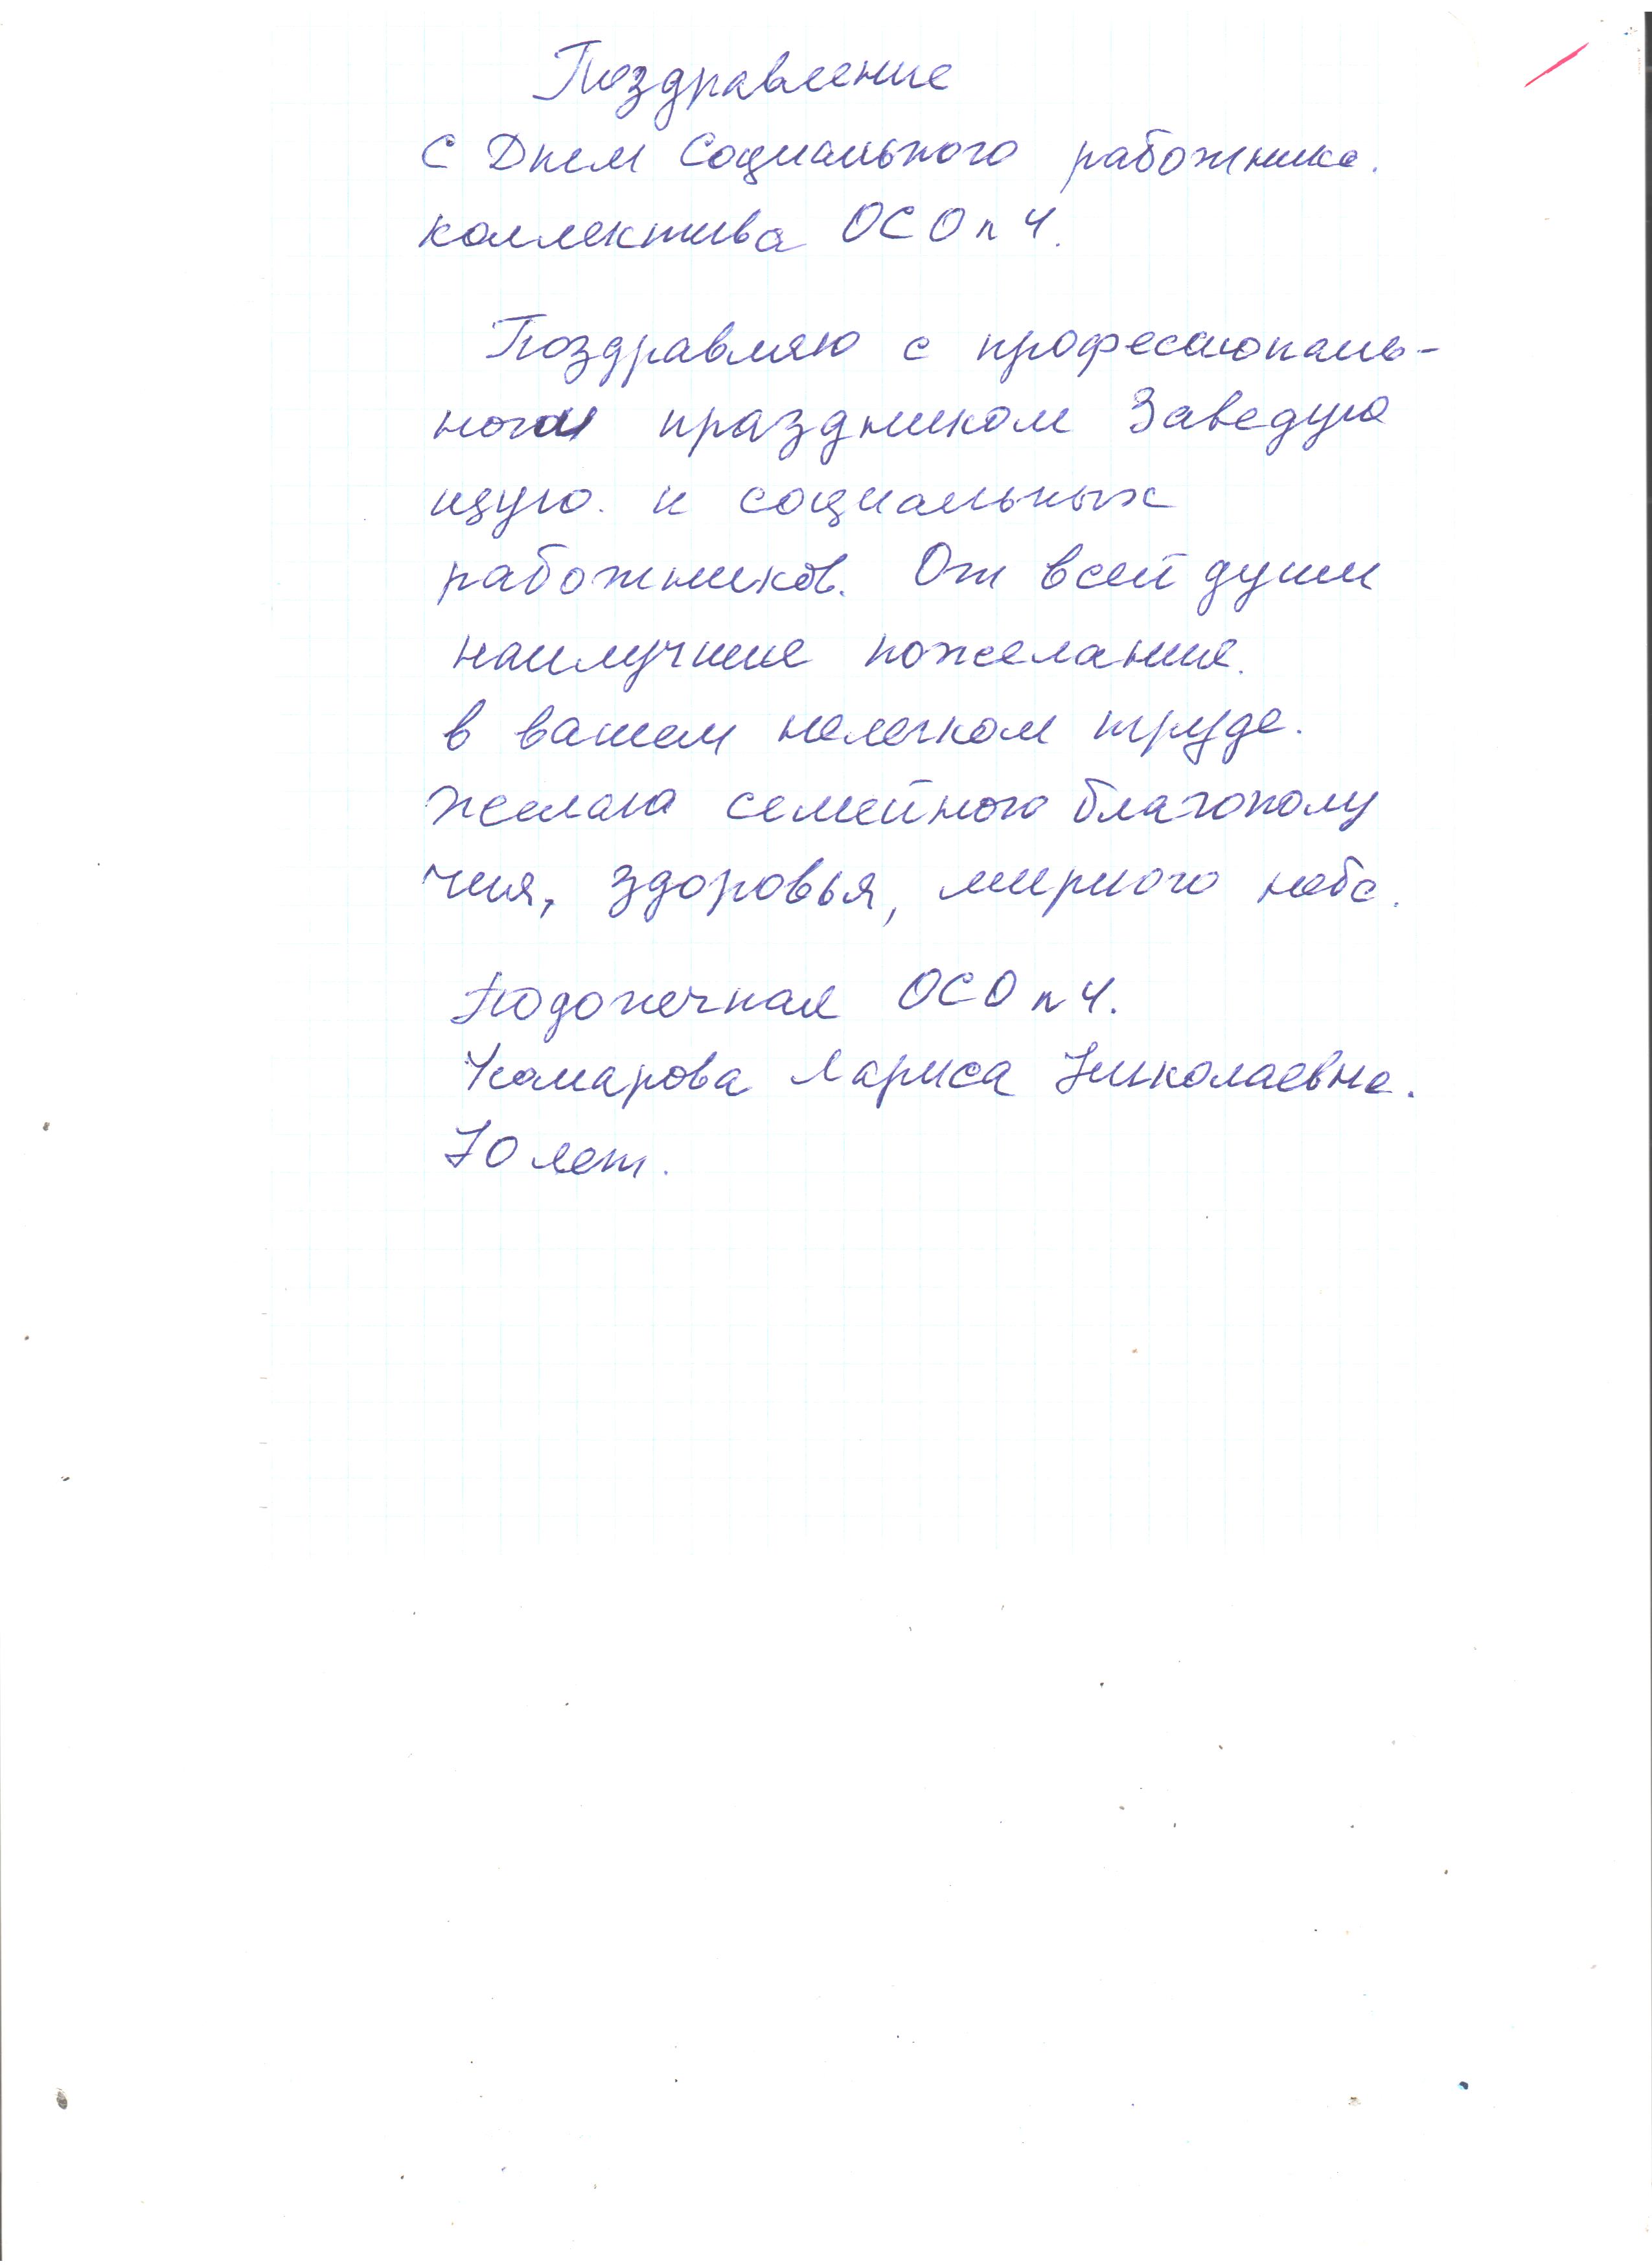 Поздравление
с Днем Социального работника.
коллектива ОСО n 4.
Поздравляю с професиональ-
ном праздником Заведую
щую. и социальных
работников. От всей души
наилучшие пожелание.
в вашем нелегком труде.
Желаю семейного благополу
чия, здоровья, мирного неба.
Подопечная ОСО n 4.
Комарова Лариса Николаевна.
70 лет.